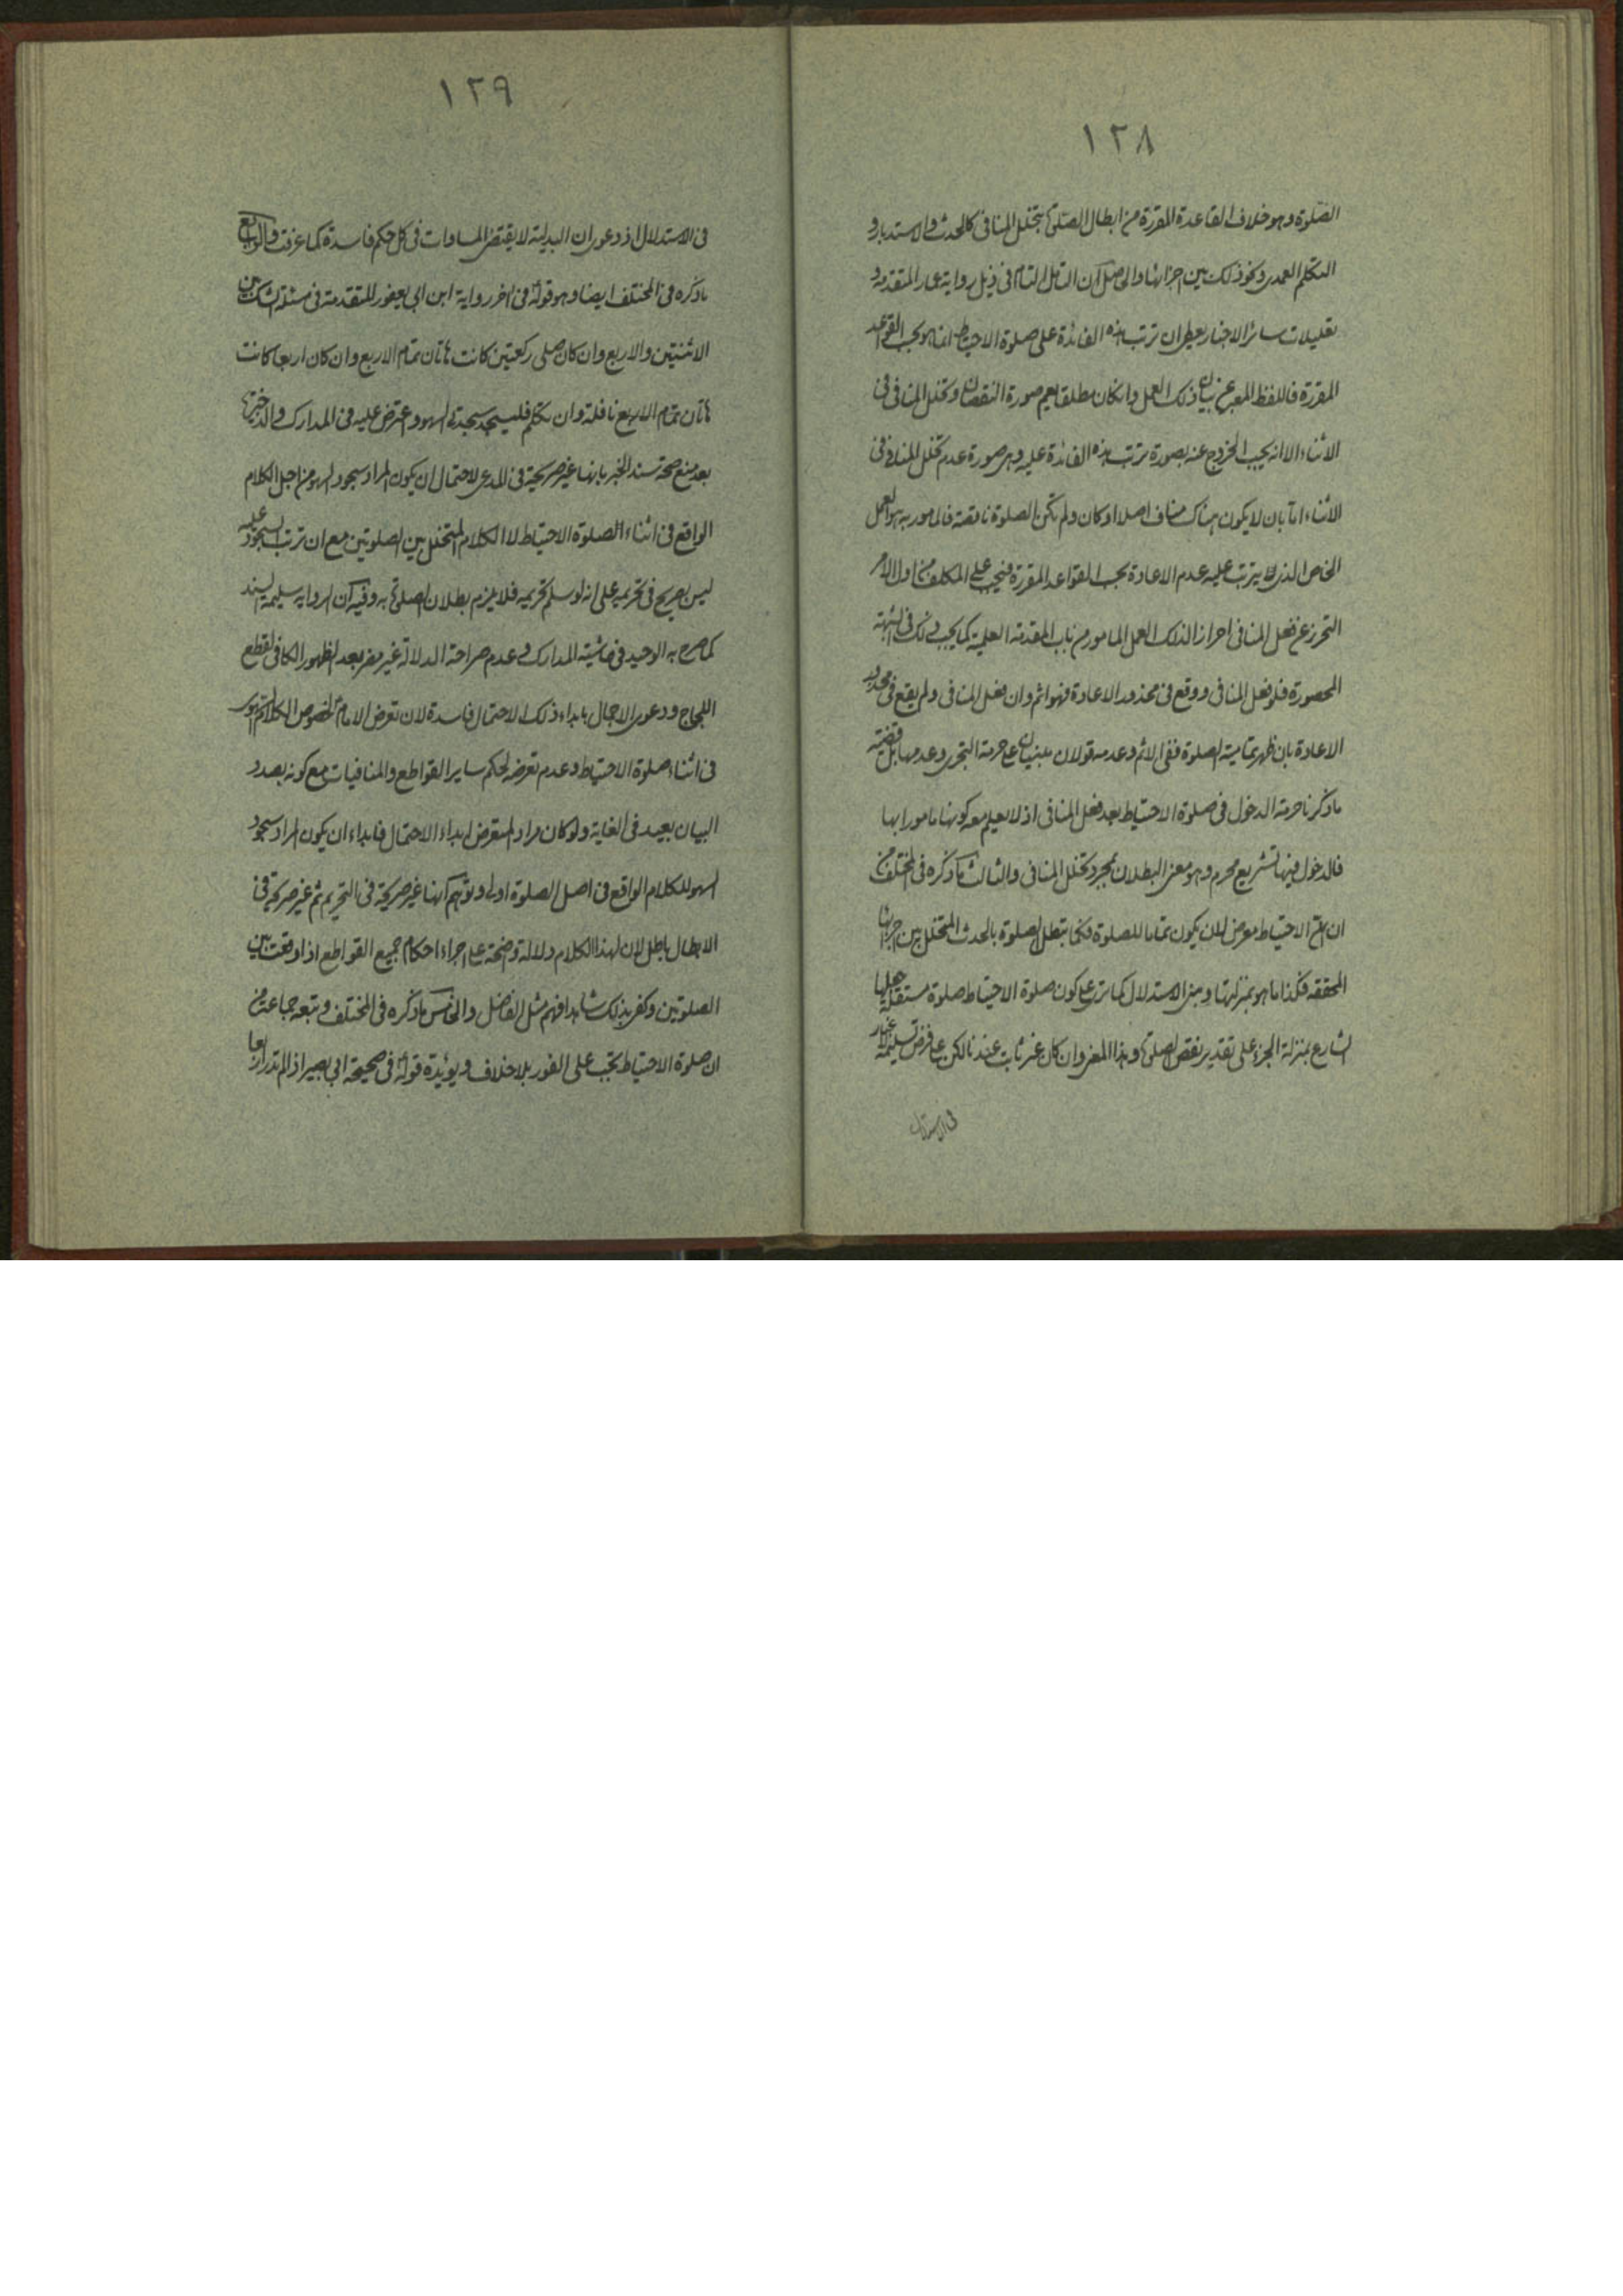 ١٢٨
الصلوة وهو خلاف القاعدة المقررة من ابطال الصلوة بتخلل المنافى كالحدث والاستدبار و
التكلم العمدى ونحو ذلك بين اجزائها والحاصل ان التأمل التام فى ذيل رواية عمار المتقدمة و
تعليلات سائر الاخبار يعطى ان ترتب هذه الفائدة على صلوة الاحتياط انما هو بحسب القواعد
المقررة فاللفظ المعبر عن بيان ذلك العمل وان كان مطلقا يعم صورة النقصان وتخلل المنافى فى
الاثناء الا انه يجب الخروج عنه بصورة ترتب هذه الفائدة عليه وهى صورة عدم تخلل المنافى فى
الاثناء اما بان لا يكون هناك مناف اصلا او كان ولم تكن الصلوة ناقصة فالمامور به هو العمل
الخاص الذى يترتب عليه عدم الاعادة بحسب القواعد المقررة فيجب على المكلف من اول الامر
التحرز عن فعل المنافى احرازا لذلك العمل المامور من باب المقدمة العلمية كما يجب ذلك فى الشبهة
المحصورة فلو فعل المنافى ووقع فى محذور الاعادة فهو اثم وان فعل المنافى ولم يقع فى محذور
الاعادة بان ظهر تمامية الصلوة ففى الاثم وعدمه قولان مبنيان على حرمة التجرى وعدمها بل قضية
ما ذكرنا حرمة الدخول فى صلوة الاحتياط بعد فعل المنافى اذ لا يعلم معه كونها مامورا بها
فالدخول فيها تشريع محرم وهو معنى البطلان بمجرد تخلل المنافى والثالث ما ذكره فى المختلف من
ان الاحتياط معرض لان يكون تماما للصلوة فكما تبطل الصلوة بالحدث المتخلل بين اجزائها
المحققه فكذا ما هو بمنزلتها ومبنى الاستدلال كما ترى على كون صلوة الاحتياط صلوة مستقلة جعلها
الشارع بمنزلة الجزء على تقدير نقص الصلوة وهذا المعنى وان كان غير ثابت عندنا لكن على فرض تسليمه لا غبار
فى الاستدلال
١٢٩
فى الاستدلال اذ دعوى ان البدلية لا يقتضى المساوات فى كل حكم فاسدة كما عرفت والرابع
ما ذكره فى المختلف ايضا وهو قوله فى اخر رواية ابن ابى يعفور المتقدمة فى مسئلة الشك بين
الاثنتين والاربع وان كان صلى ركعتين كانت هاتان تمام الاربع وان كان اربعا كانت
هاتان تمام الاربع نافلة وان تكلم فليسجد سجدتى السهو واعترض عليه فى المدارك والذخيرة
بعد منع صحة سند الخبر بانها غير صريحة فى المدعى لاحتمال ان يكون المراد سجود السهو من اجل الكلام
الواقع فى اثناء الصلوة الاحتياط لا الكلام المتخلل بين الصلوتين مع ان ترتب السجود عليه
ليس بصريح فى تحريمه على انه لو سلم تحريمه فلا يلزم بطلان الصلوة به وفيه ان الرواية سليمة السند
كما صرح به الوحيد فى حاشية المدارك وعدم صراحة الدلالة غير مضر بعد الظهور الكافى لقطع
اللجاج ودعوى الاجمال بابداء ذلك الاحتمال فاسدة لان تعرض الامام لخصوص الكلام
فى اثناء صلوة الاحتياط وعدم تعرضه لحكم ساير القواطع والمنافيات مع كونه بصدد
البيان بعيد فى الغاية ولو كان مراد المتعرض ابداء الاحتمال فابداء ان يكون المراد سجود
السهو للكلام الواقع فى اصل الصلوة اولى وتوهم انها غير صريحة فى التحريم ثم غير صريحة فى
الابطال باطل لان لهذا الكلام دلالة واضحة على اجراء احكام جميع القواطع اذا وقعت بين
الصلوتين وكفى بذلك شاهدا فهم مثل الفاضل والخامس ما ذكره فى المختلف وتبعه جماعة من
ان صلوة الاحتياط تجب على الفور بلا خلاف ويؤيده قوله فى صحيحة ابى بصير اذا لم تدر اربعا